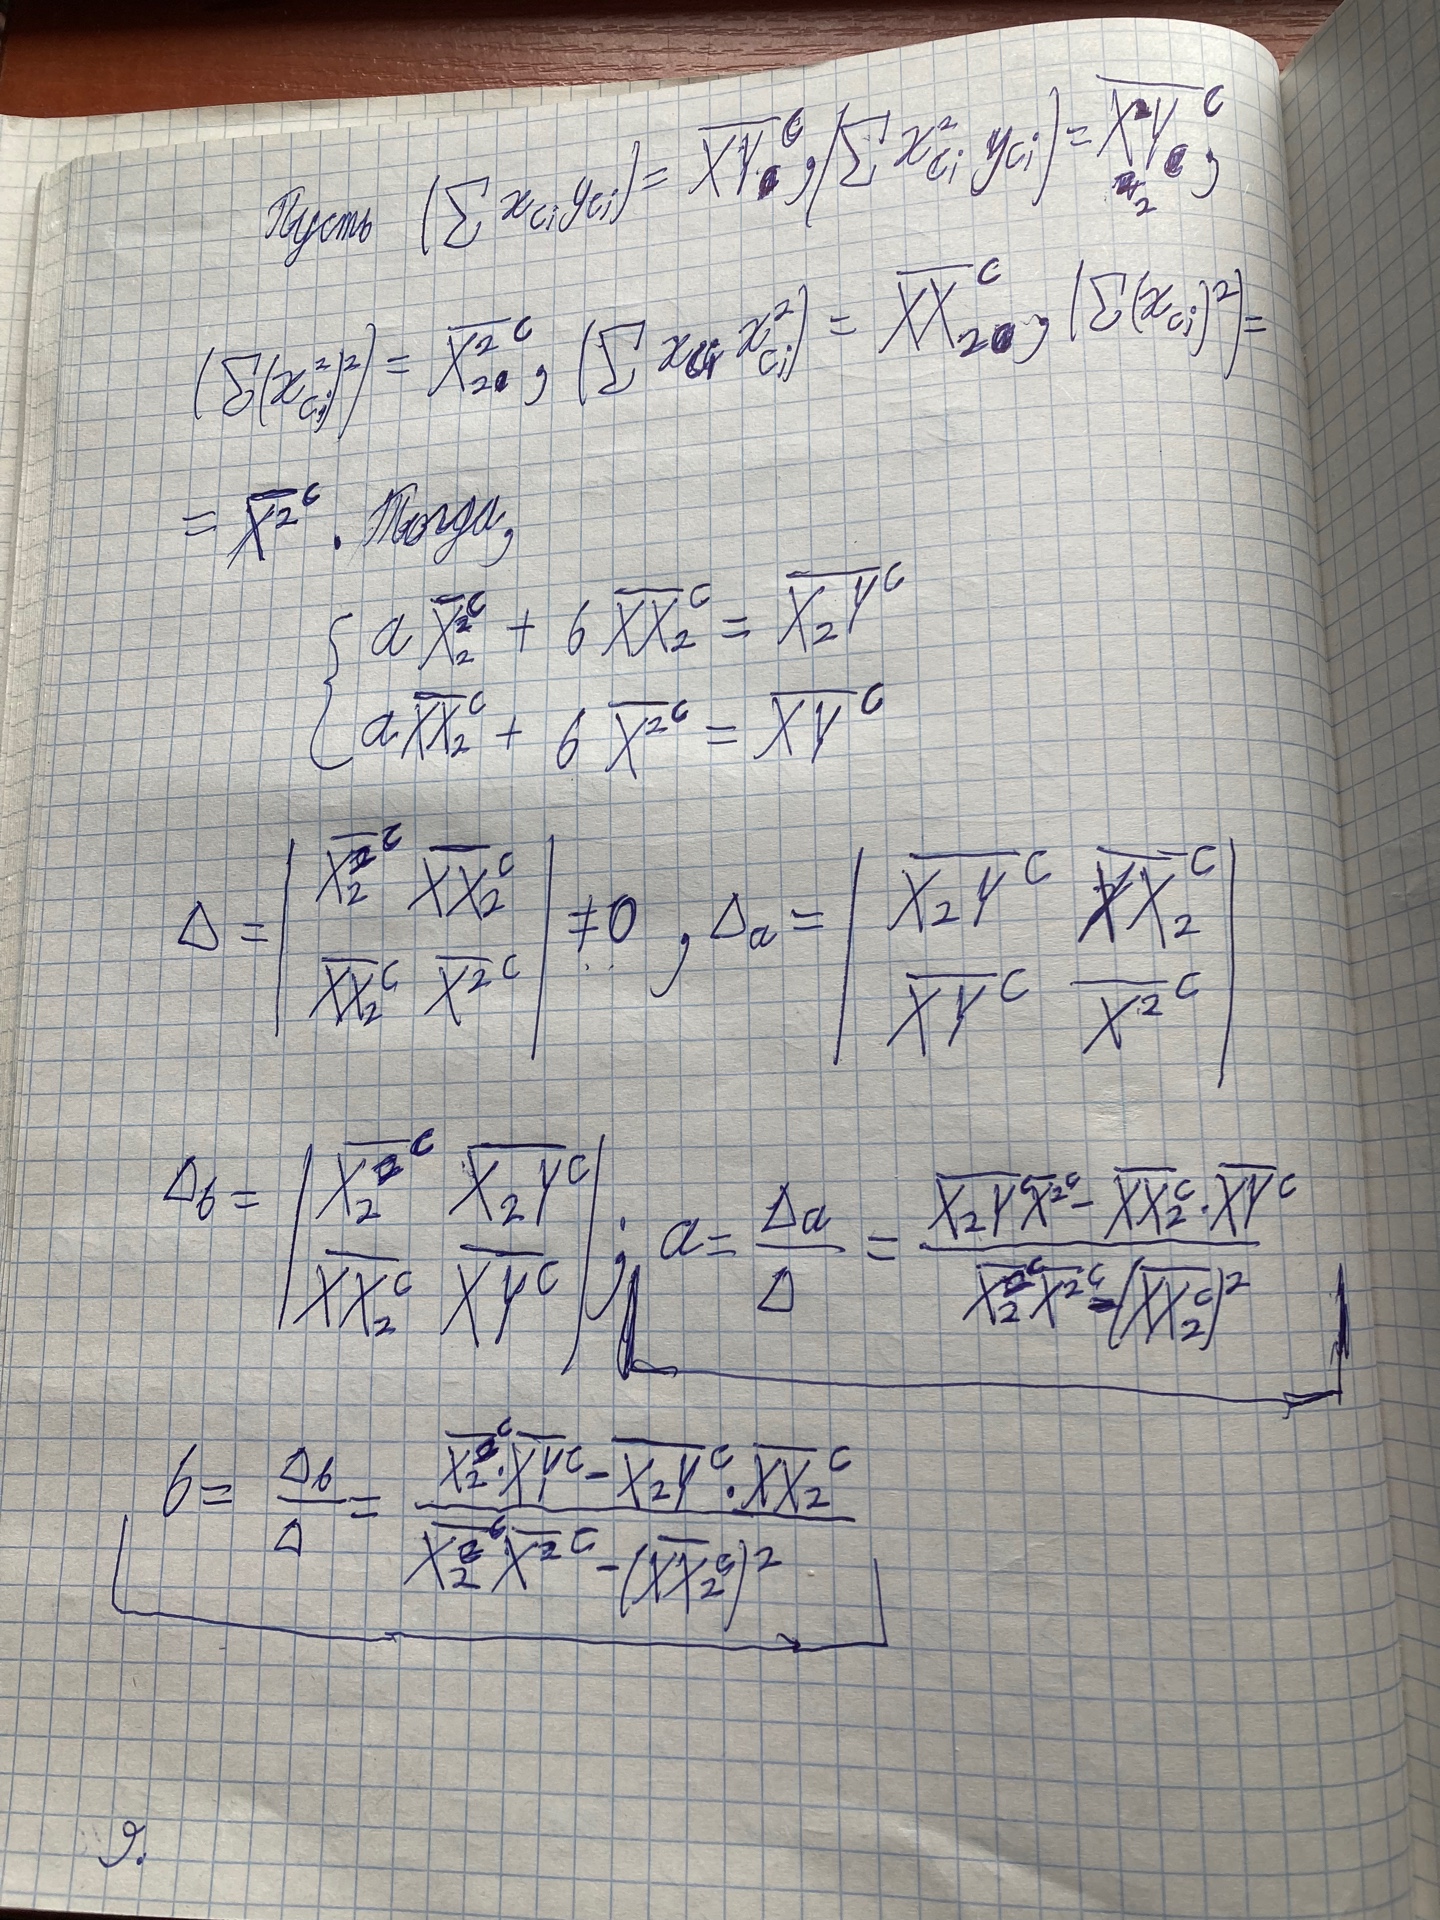 Пусть (∑ x_{ci} y_{ci}) = \overline{XY}^c, (∑ x_{ci}^2 y_{ci}) = \overline{X_2Y}^c,
(∑(x_{ci}^2)^2) = \overline{X_2^2}^c, (∑ x_{ci} x_{ci}^2) = \overline{XX_2}^c, (∑(x_{ci})^2) =
= \overline{X^2}^c. Тогда,
{ a \overline{X_2^2}^c + b \overline{XX_2}^c = \overline{X_2Y}^c
a \overline{XX_2}^c + b \overline{X^2}^c = \overline{XY}^c
Δ = | \overline{X_2^2}^c \overline{XX_2}^c ; \overline{XX_2}^c \overline{X^2}^c | ≠ 0, Δ_a = | \overline{X_2Y}^c \overline{XX_2}^c ; \overline{XY}^c \overline{X^2}^c |
Δ_b = | \overline{X_2^2}^c \overline{X_2Y}^c ; \overline{XX_2}^c \overline{XY}^c |; a = \frac{Δ_a}{Δ} = \frac{\overline{X_2Y}^c \overline{X^2}^c - \overline{XX_2}^c · \overline{XY}^c}{\overline{X_2^2}^c \overline{X^2}^c - (\overline{XX_2}^c)^2}
b = \frac{Δ_b}{Δ} = \frac{\overline{X_2^2}^c · \overline{XY}^c - \overline{X_2Y}^c · \overline{XX_2}^c}{\overline{X_2^2}^c \overline{X^2}^c - (\overline{XX_2}^c)^2}
9.